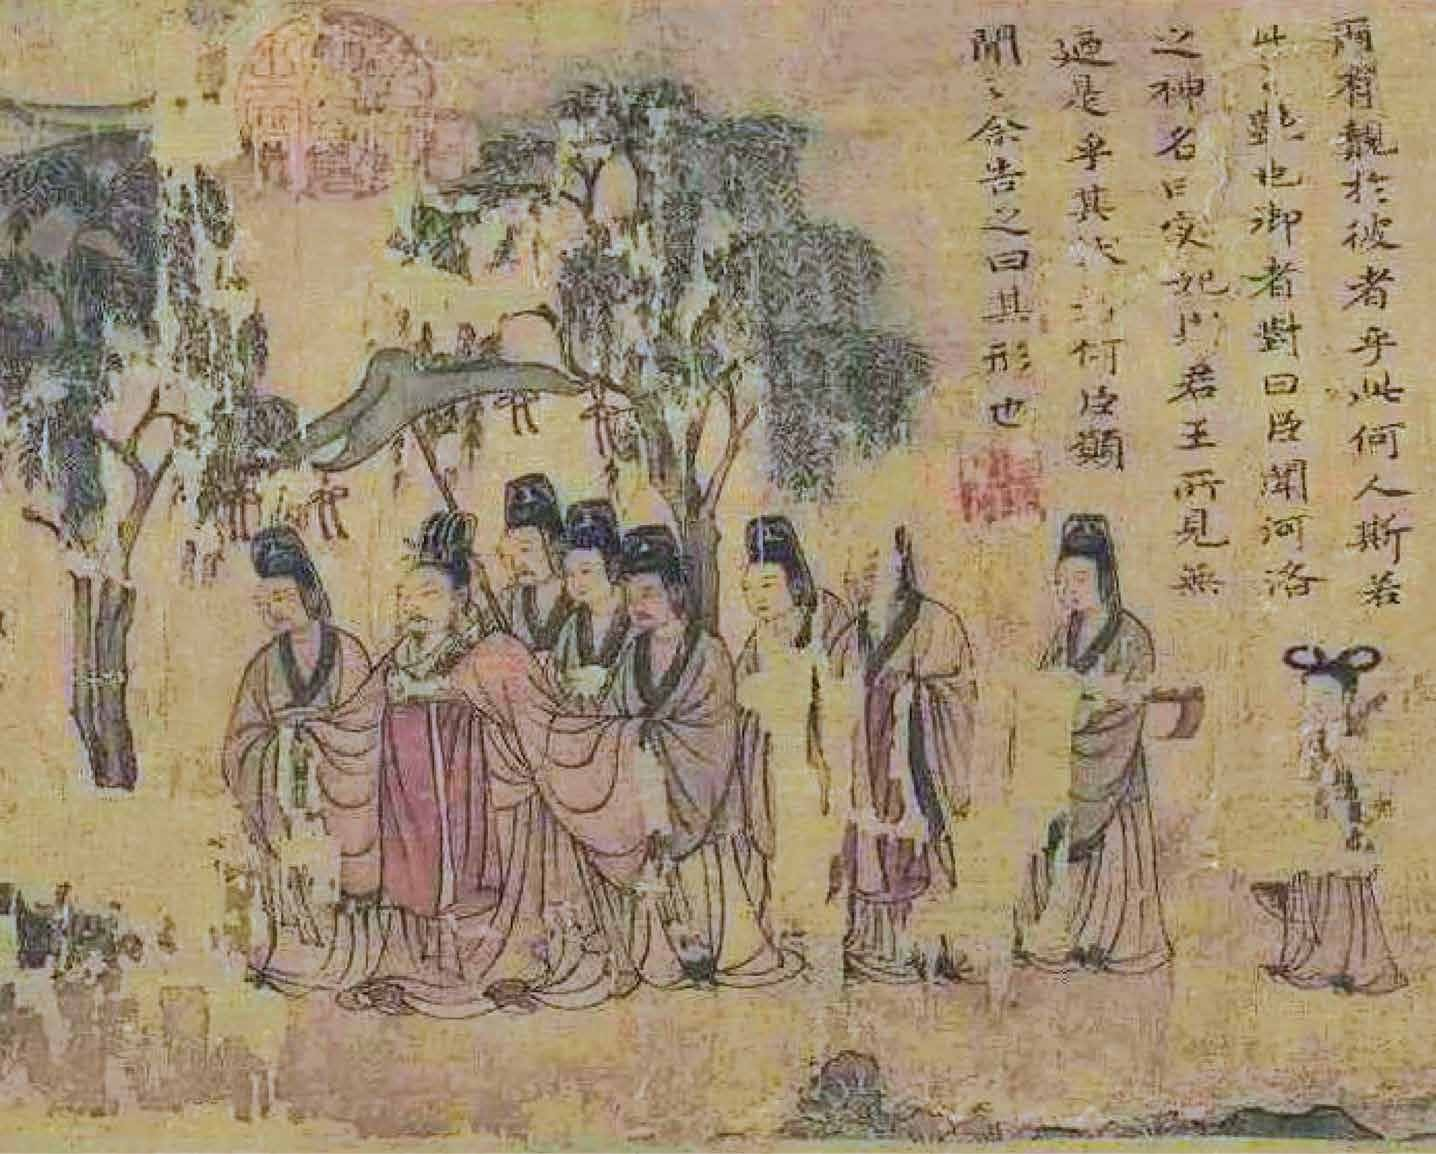 爾有覿於彼者乎此何人斯若
此之艷也御者對曰臣聞河洛
之神名曰宓妃君王所見無
迺是乎其何臣願
聞之余告之曰其形也